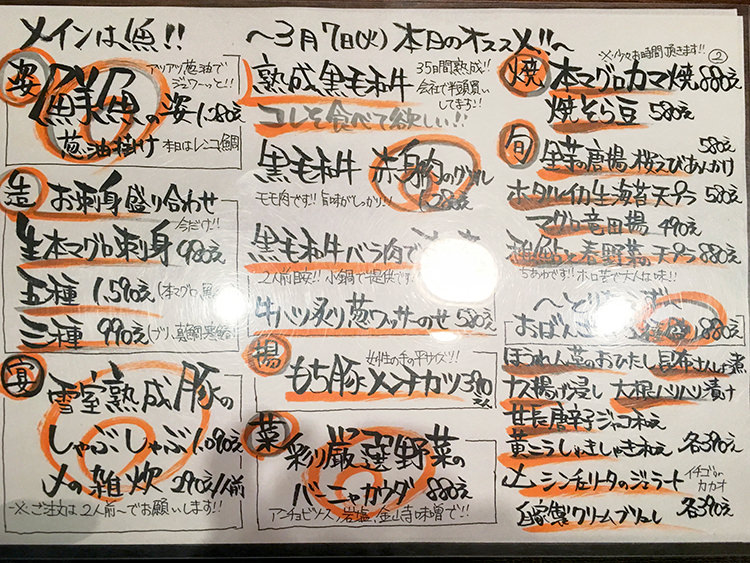 メインは魚!!
～3月7日(火)本日のオススメ!!～
姿
アツアツ葱油で
ジュワーッと!!
鮮魚の姿 1,180え
葱油掛け 本日はレンコ鯛
造
お刺身盛り合わせ
今だけ!!
生本マグロ刺身 980え
五種 1,590え(本マグロ
三種 990え(ブリ、真鯛
宴
雪室熟成豚の
しゃぶしゃぶ 1,090え
〆の雑炊 290え/1人前
※ご注文は2人前～でお願いします!!
熟成黒毛和牛
35日間熟成!!
会社で半頭買い
してます!!
コレを食べて欲しい!!
黒毛和牛 赤身肉のグリル
モモ肉です!!旨味がしっかり!!
黒毛和牛バラ肉で
2人前目安!!小鍋で提供です
牛ハツ炙り葱ワッサーのせ 580え
揚
女性の手の平サイズ!!
もち豚メンチカツ 390え
菜
彩り厳選野菜の
バーニャカウダ 880え
アンチョビソース、岩塩、金山寺味噌で!!
※少々お時間頂きます!!
②
焼
本マグロカマ焼 880え
焼そら豆 580え
旬
580え
里芋の唐揚 桜えびあんかけ
ホタルイカ生海苔天プラ 580え
マグロ竜田揚 490え
春野菜の天プラ 880え
ちあゆです!!ホロ苦で大人な味!!
おばんざい 880え
ほうれん草のおひたし 昆布さんしょ煮
ナス揚げ浸し 大根ハリハリ漬け
甘長唐辛子ジャコ和え
黄ニラしゃきしゃき和え 各390え
シンチェリータのジェラート
イチゴor
カカオ
自家製クリームブリュレ 各390え